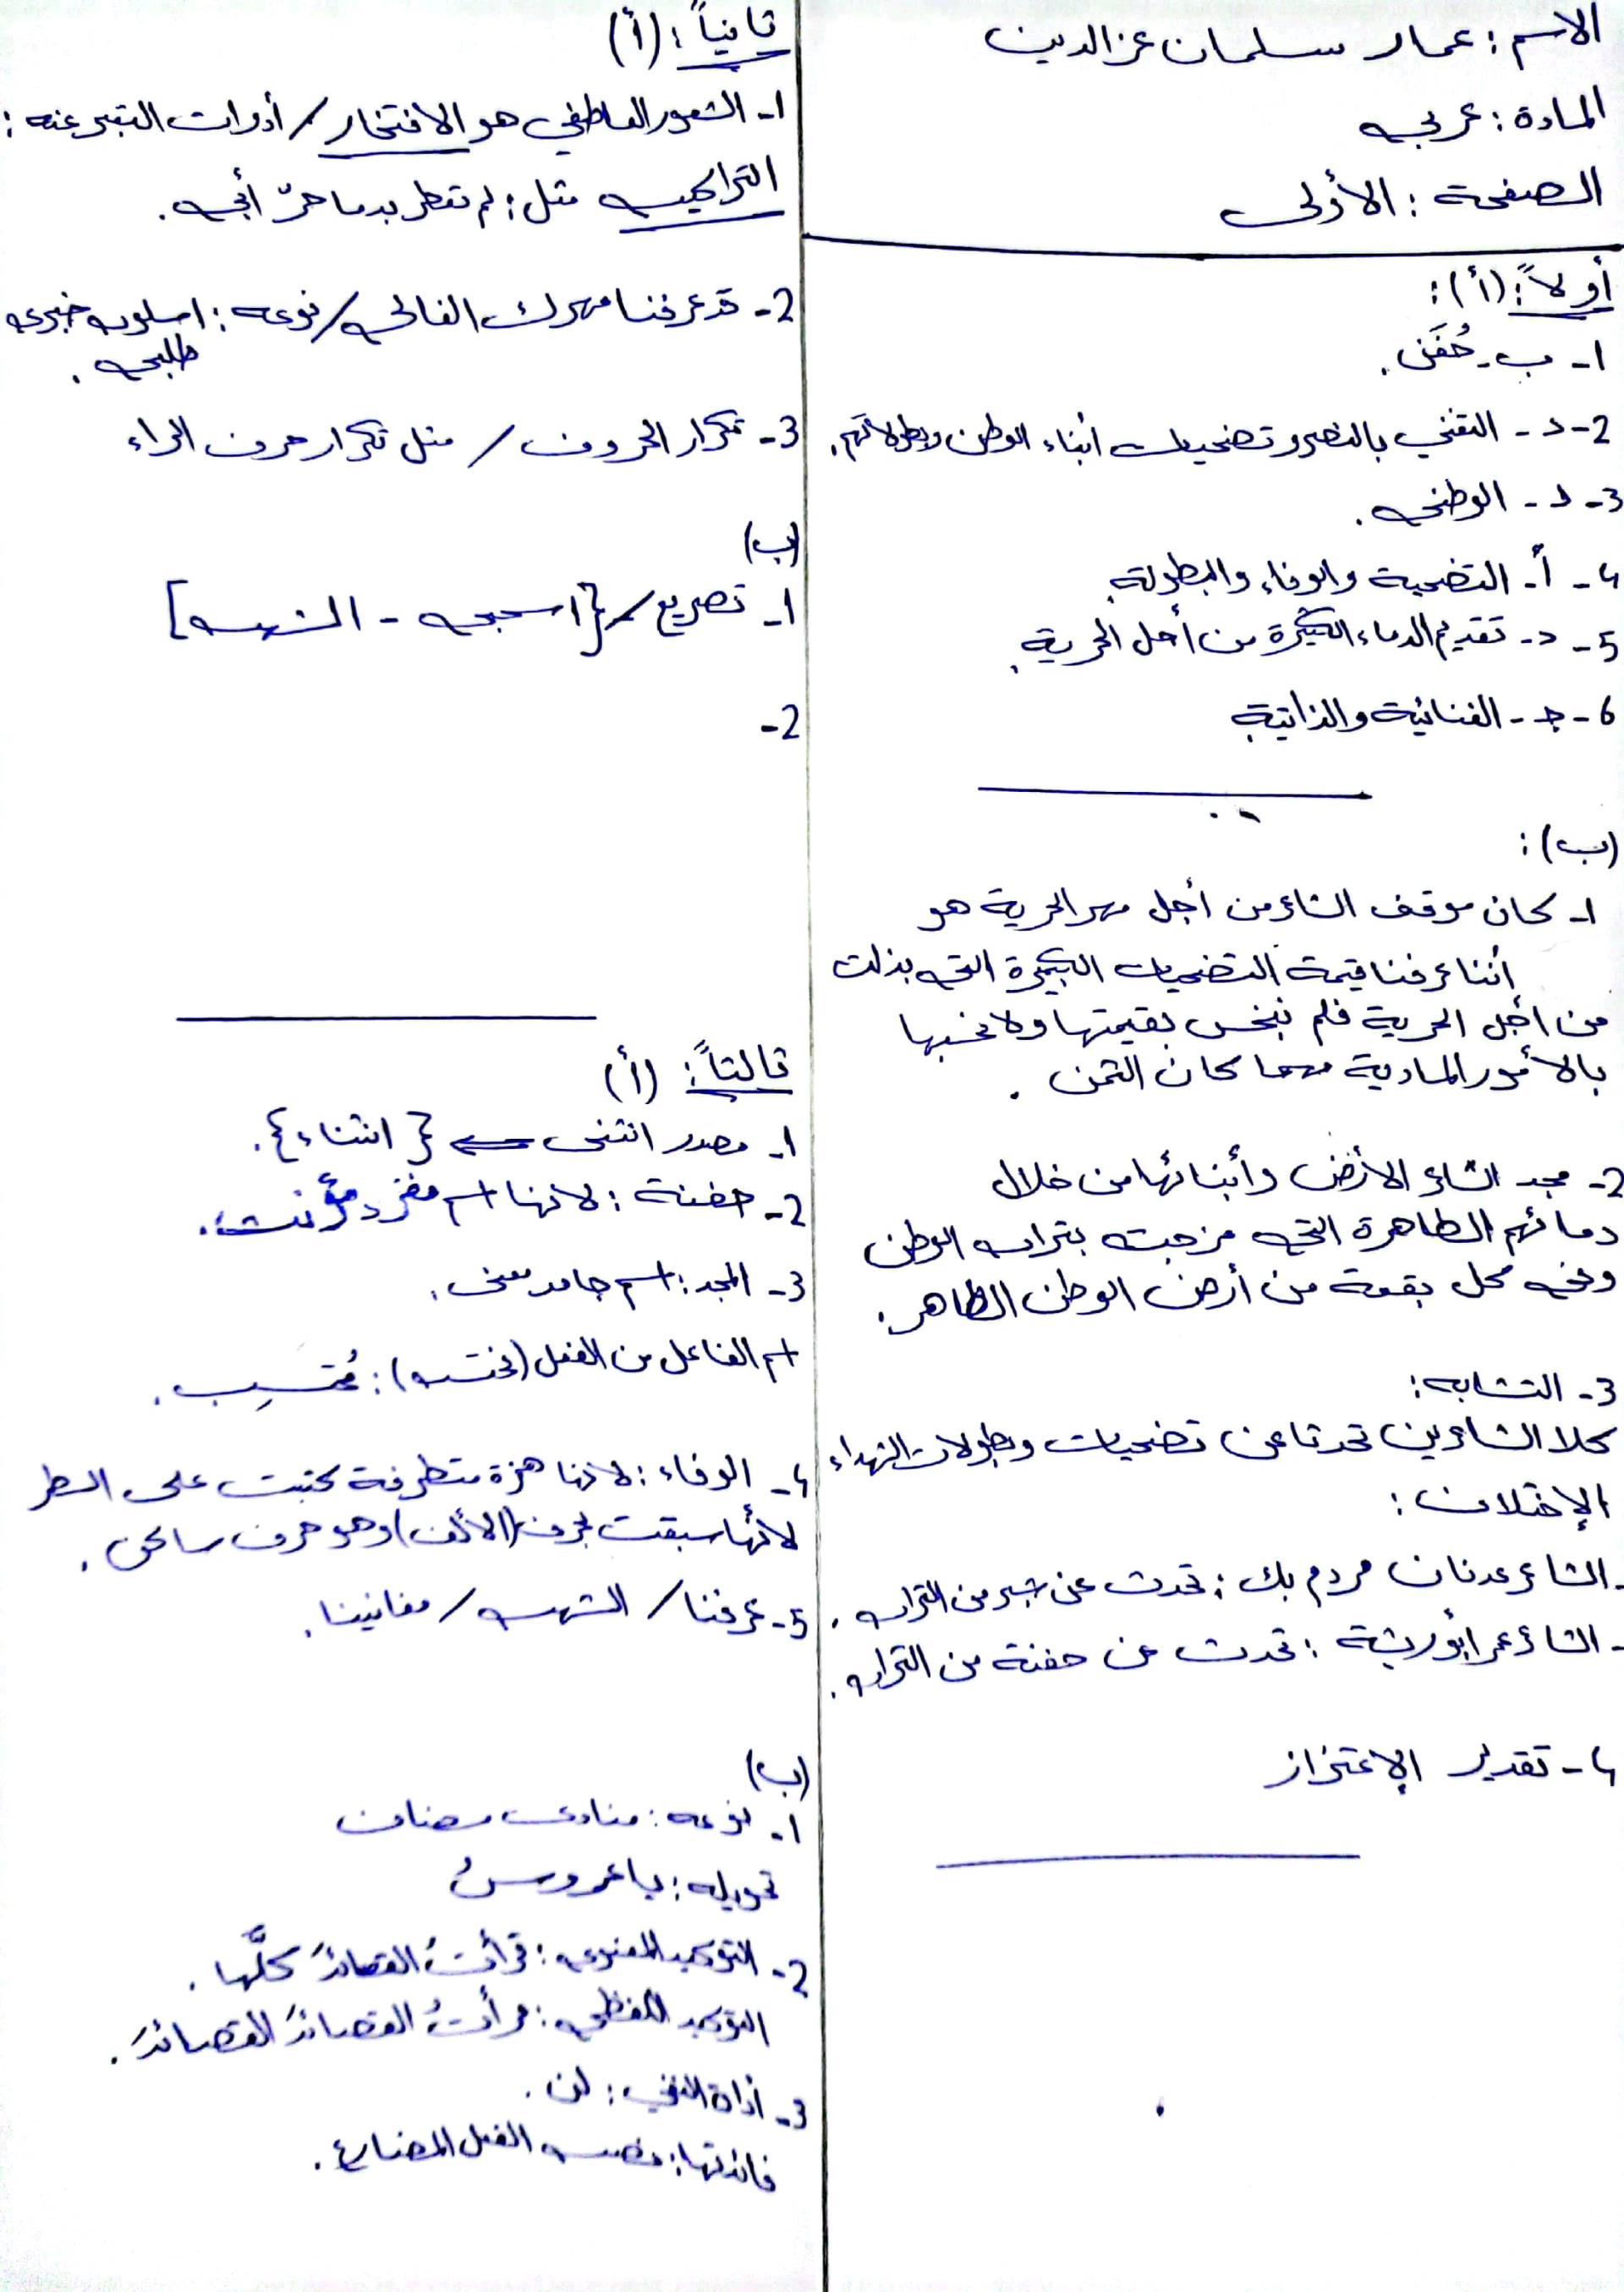 الاسم : عمار سلمان عز الدين
المادة : عربي
الصفحة : الأولى
أولاً : (أ) :
1- ب - حُفَن .
2- د - التغني بالنصر وتضحيات أبناء الوطن وبطولاتهم .
3- د - الوطني .
4- أ - التضحية والوفاء والبطولة .
5- د - تقديم الدماء الكثيرة من أجل الحرية .
6- ج - الغنائية والذاتية
(ب) :
1- كان موقف الشاعر من أجل مهر الحرية هو
أننا عرفنا قيمة التضحيات الكبيرة التي بذلت
من أجل الحرية فلم نبخس بقيمتها ولا نحسبها
بالأمور المادية مهما كان الثمن .
2- مجد الشاعر الأرض وأبنائها من خلال
دمائهم الطاهرة التي مزجت بتراب الوطن
وفي كل بقعة من أرض الوطن الطاهر .
3- التشابه :
كلا الشاعرين تحدثا عن تضحيات وبطولات الشهداء
الإختلاف :
- الشاعر عدنان مردم بك : تحدث عن شبر من التراب .
- الشاعر عمر أبو ريشة : تحدث عن حفنة من التراب .
4- تقدير الإعتزاز
ثانياً : (أ)
1- الشعور العاطفي هو الافتخار / أدوات التعبير عنه :
التراكيب مثل : لم تعطر بدما حرّ أبي .
2- قد عرفنا مهرك الغالي / نوعه : اسلوب خبري
طلبي .
3- تكرار الحروف / مثل تكرار حرف الراء
(ب)
1- تصريع / {اسحبي - الشهب]
2-
ثالثاً : (أ)
1- مصدر انتنى ← { انثناء } .
2- حفنة : لانها اسم مفرد مؤنث .
3- المجد : اسم جامد معنى .
اسم الفاعل من الفعل (نحتسب) : مُحتسِب .
4- الوفاء : لانها همزة متطرفة كتبت على السطر
لأنها سبقت بحرف (الألف) وهو حرف ساكن .
5- عرفنا / الشهب / مغانينا .
(ب)
1- نوعه : منادى مضاف
تحويله : يا عروسُ
2- التوكيد المعنوي : قرأتُ القصائدَ كلَّها .
التوكيد اللفظي : قرأتُ القصائدَ القصائدَ .
3- أداة النفي : لن .
فائدتها : نصب الفعل المضارع .